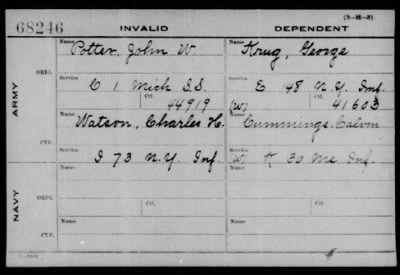 68246 INVALID DEPENDENT (3-H-3)
Name Potter, John W. Name Krug, George
ARMY ORIG. Service C 1 Mich S.S. Service E 148 N.Y. Inf.
Ctf. 44919 (W) Ctf. 41603
Name Watson, Charles H. Name Cummings, Calvin
CTF. I 73 N.Y. Inf (W) K 30 Me Inf.
Name Name
NAVY ORIG. Service Ctf. Service Ctf.
Name Name
CTF.